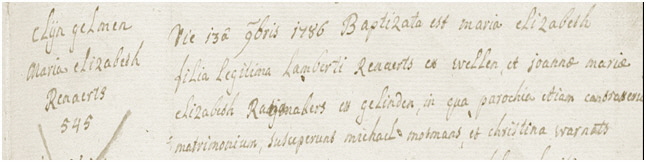 Clijn gelmen
Maria elizabeth
Renaerts
545
Die 13a 9bris 1786 Baptizata est maria elizabesh
filia legitima Lamberti Renaerts ex wellen, et joannæ mariæ
elizabesh ex gelinden, in qua parochia etiam contraxerunt
matrimonium, susceperunt michael motmans, et christina warnots